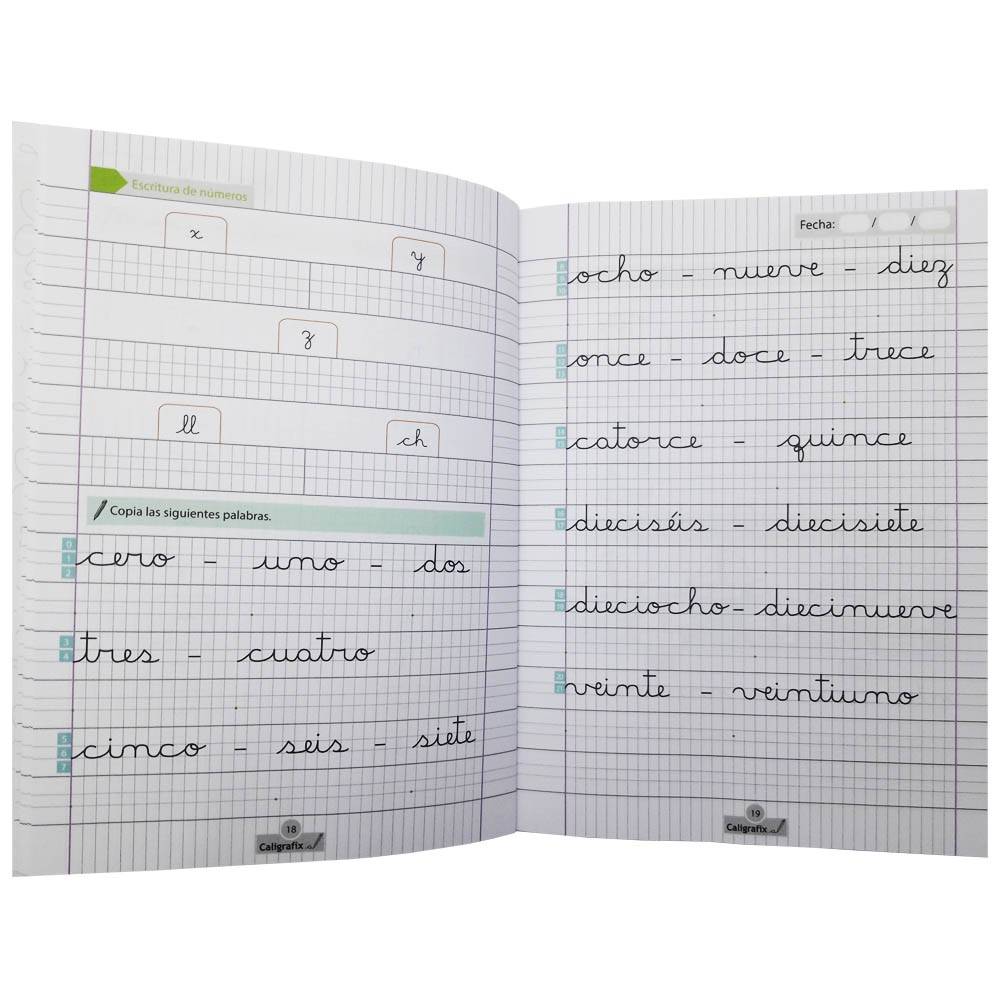 Escritura de números
x
y
z
ll
ch
Copia las siguientes palabras.
0
1
2
cero - uno - dos
3
4
tres - cuatro
5
6
7
cinco - seis - siete
18
Caligrafix
Fecha: / /
8
9
10
ocho - nueve - diez
11
12
13
once - doce - trece
14
15
catorce - quince
16
17
dieciséis - diecisiete
18
19
dieciocho - diecinueve
20
21
veinte - veintiuno
19
Caligrafix